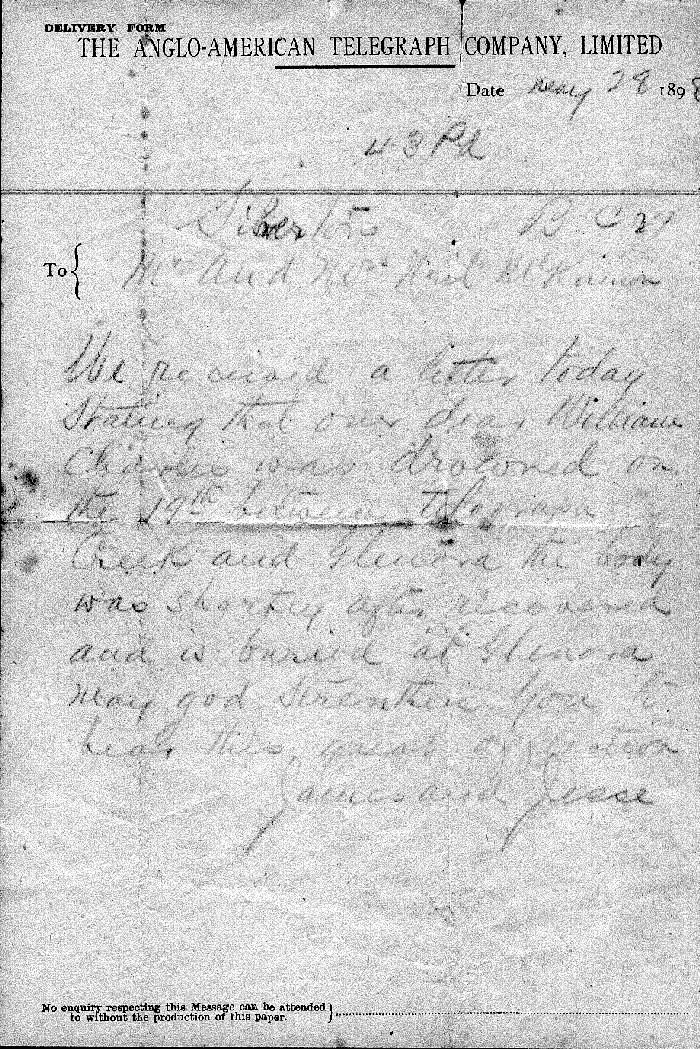 DELIVERY FORM
THE ANGLO-AMERICAN TELEGRAPH COMPANY, LIMITED
Date May 28 1898
43 Pd
Silverton B C 27
To Mr and Mrs Neil McKinnon
We received a letter today
stating that our dear William
Charlie was drowned on
the 19th between telegraph
Creek and Glenora the body
was shortly after recovered
and is buried at Glenora
may god strenthen you to
bear this great affliction
James and Jesse
No enquiry respecting this Message can be attended
to without the production of this paper.